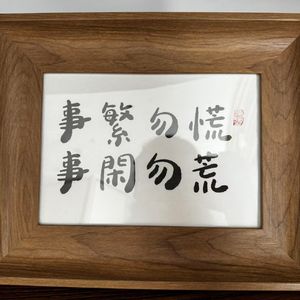 事繁勿慌
事閑勿荒